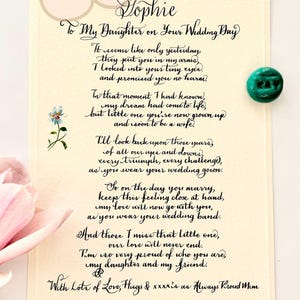 Sophie
To My Daughter on Your Wedding Day
It seems like only yesterday,
they put you in my arms,
I looked into your tiny eyes
and promised you no harm.
In that moment I had known,
my dreams had come to life,
but little one you're now grown up
and soon to be a wife.
I'll look back upon those years,
of all our ups and downs,
every triumph, every challenge,
as you wear your wedding gown.
So on the day you marry,
keep this feeling close at hand,
my love will now go with you,
as you wear your wedding band.
And though I miss that little one,
our love will never end.
I'm so very proud of who you are,
my daughter and my friend.
With Lots of Love, Hugs & xxxx's as Always Proud Mum